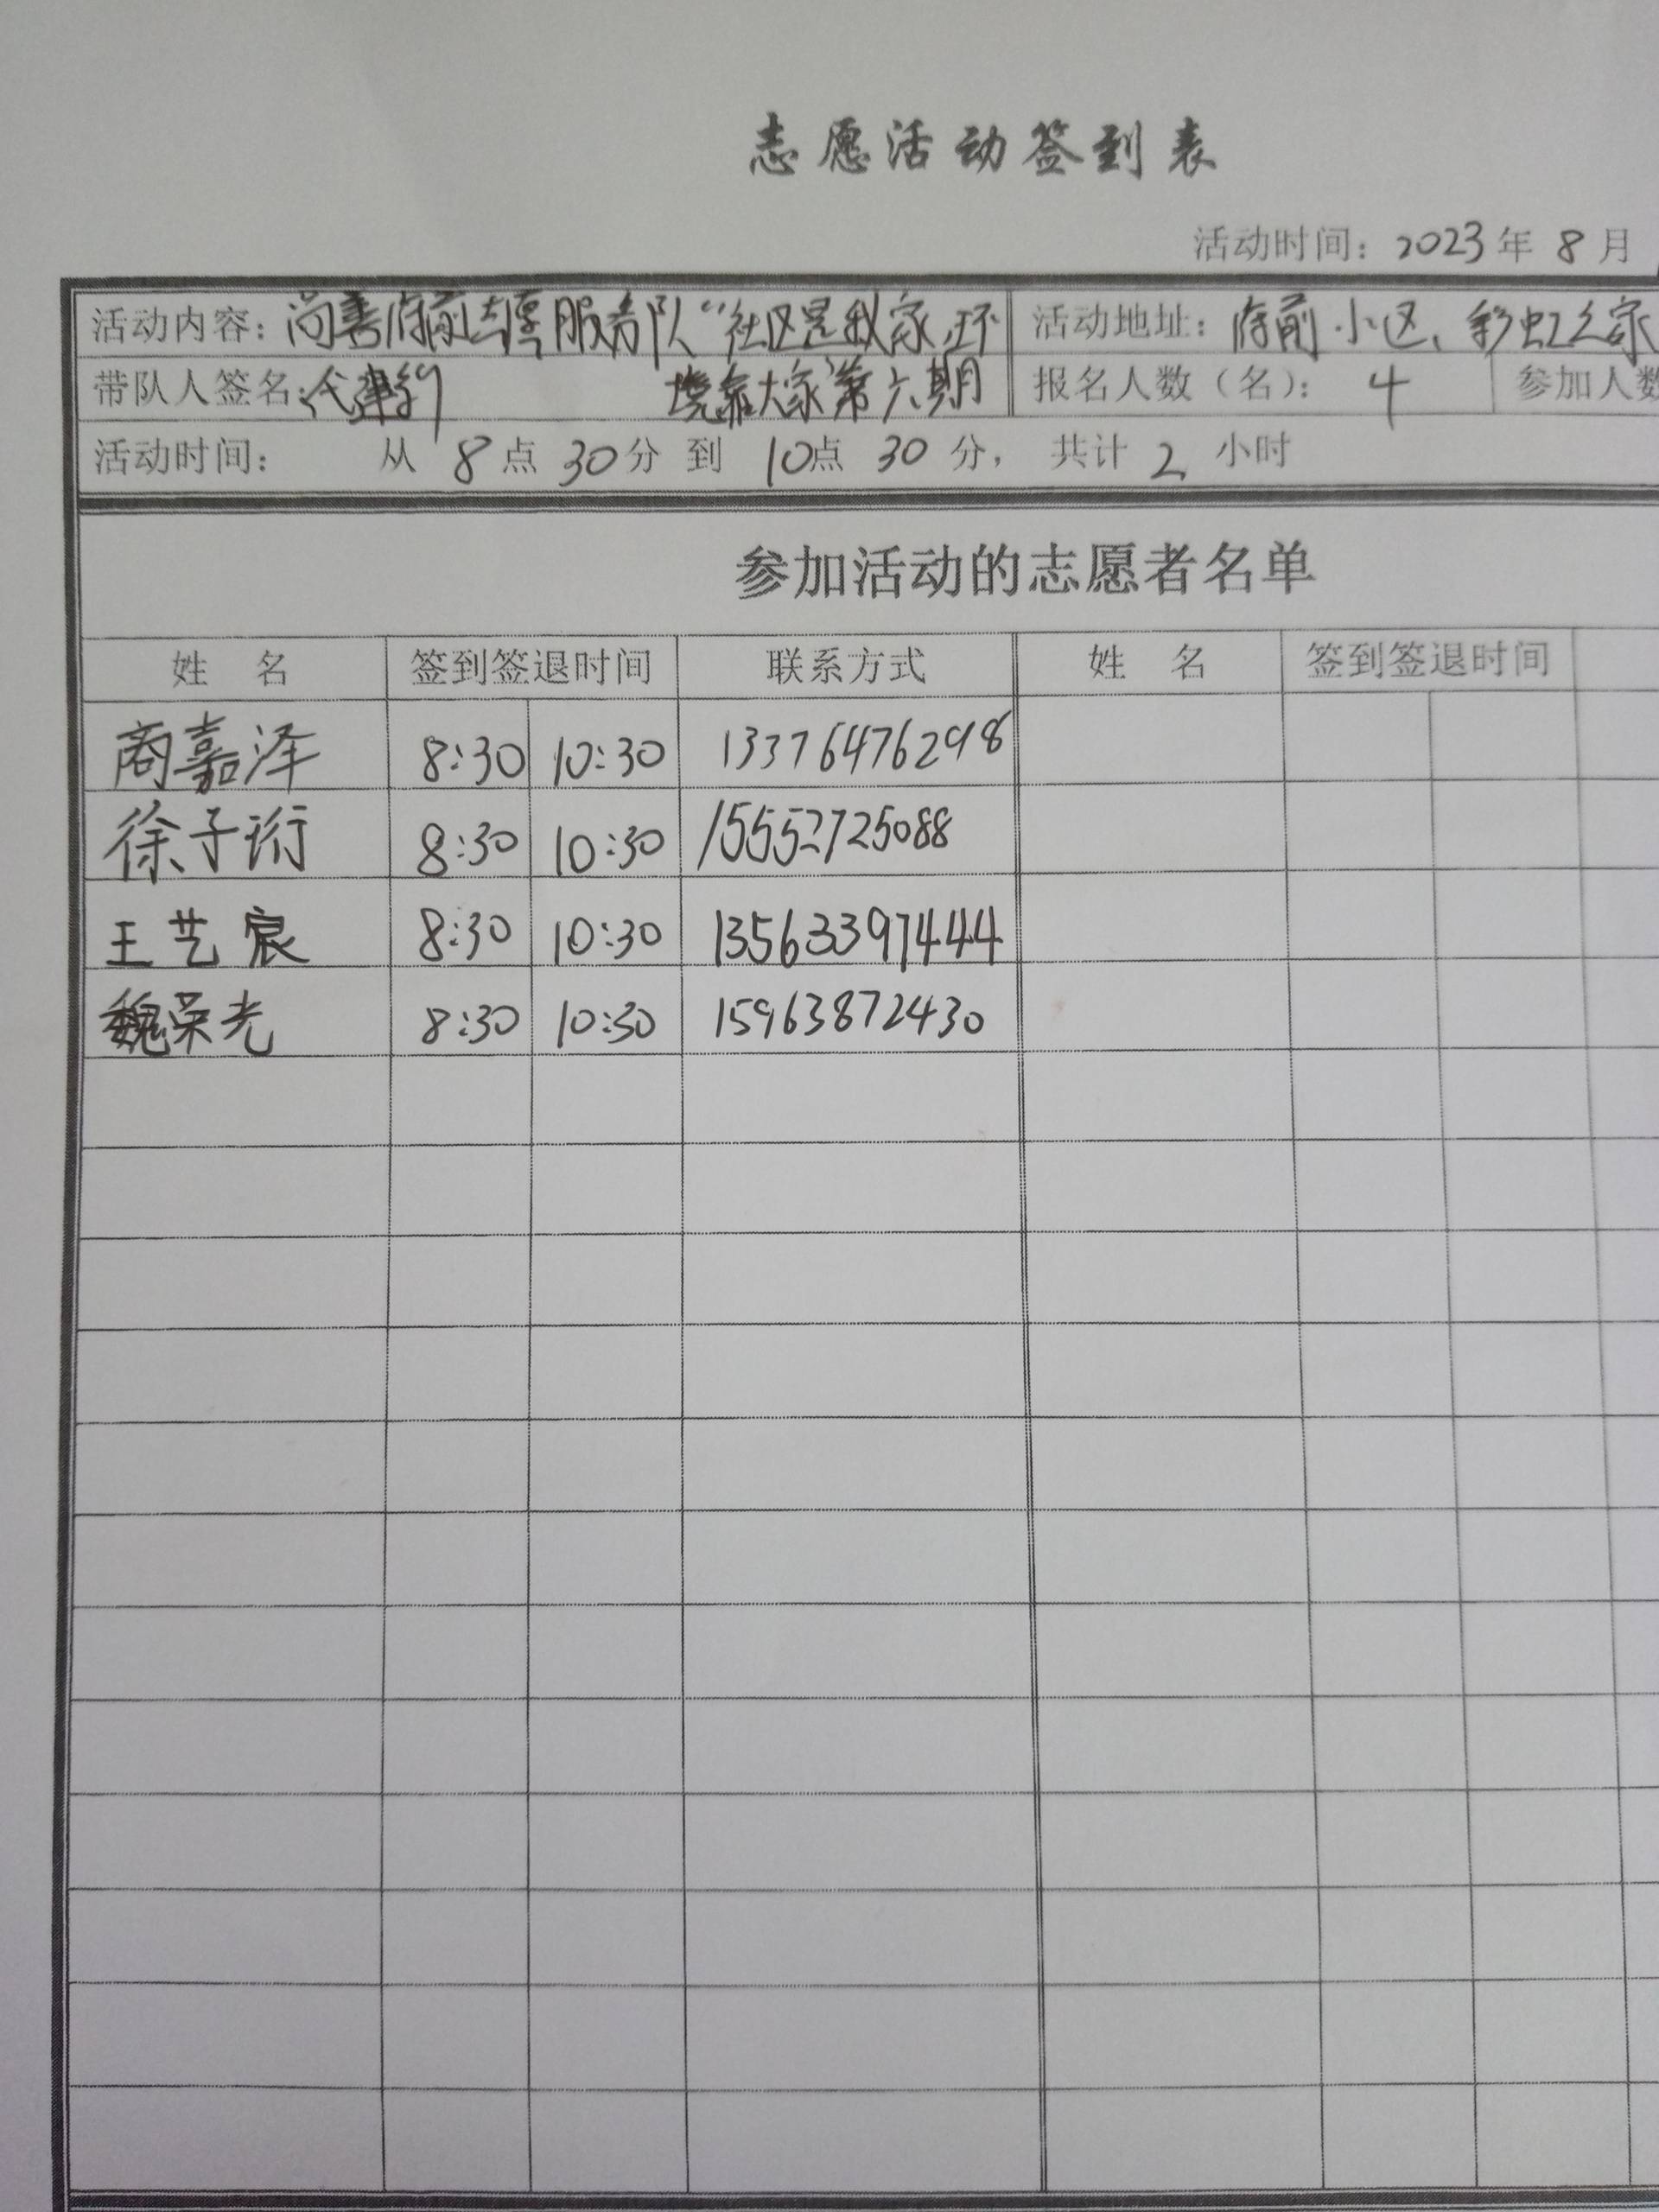 志愿活动签到表
活动时间：2023年 8月
活动内容：尚善府前志愿服务队“社区是我家,环 活动地址：府前小区、彩虹之家
带队人签名： 境靠大家”第六期 报名人数（名）：4 参加人数
活动时间： 从 8点30分 到 10点30分， 共计 2 小时
参加活动的志愿者名单
姓 名 签到签退时间 联系方式 姓 名 签到签退时间
商嘉泽 8:30 10:30 13376476298
徐子珩 8:30 10:30 15552725088
王艺宸 8:30 10:30 13563397444
魏荣光 8:30 10:30 15963872430